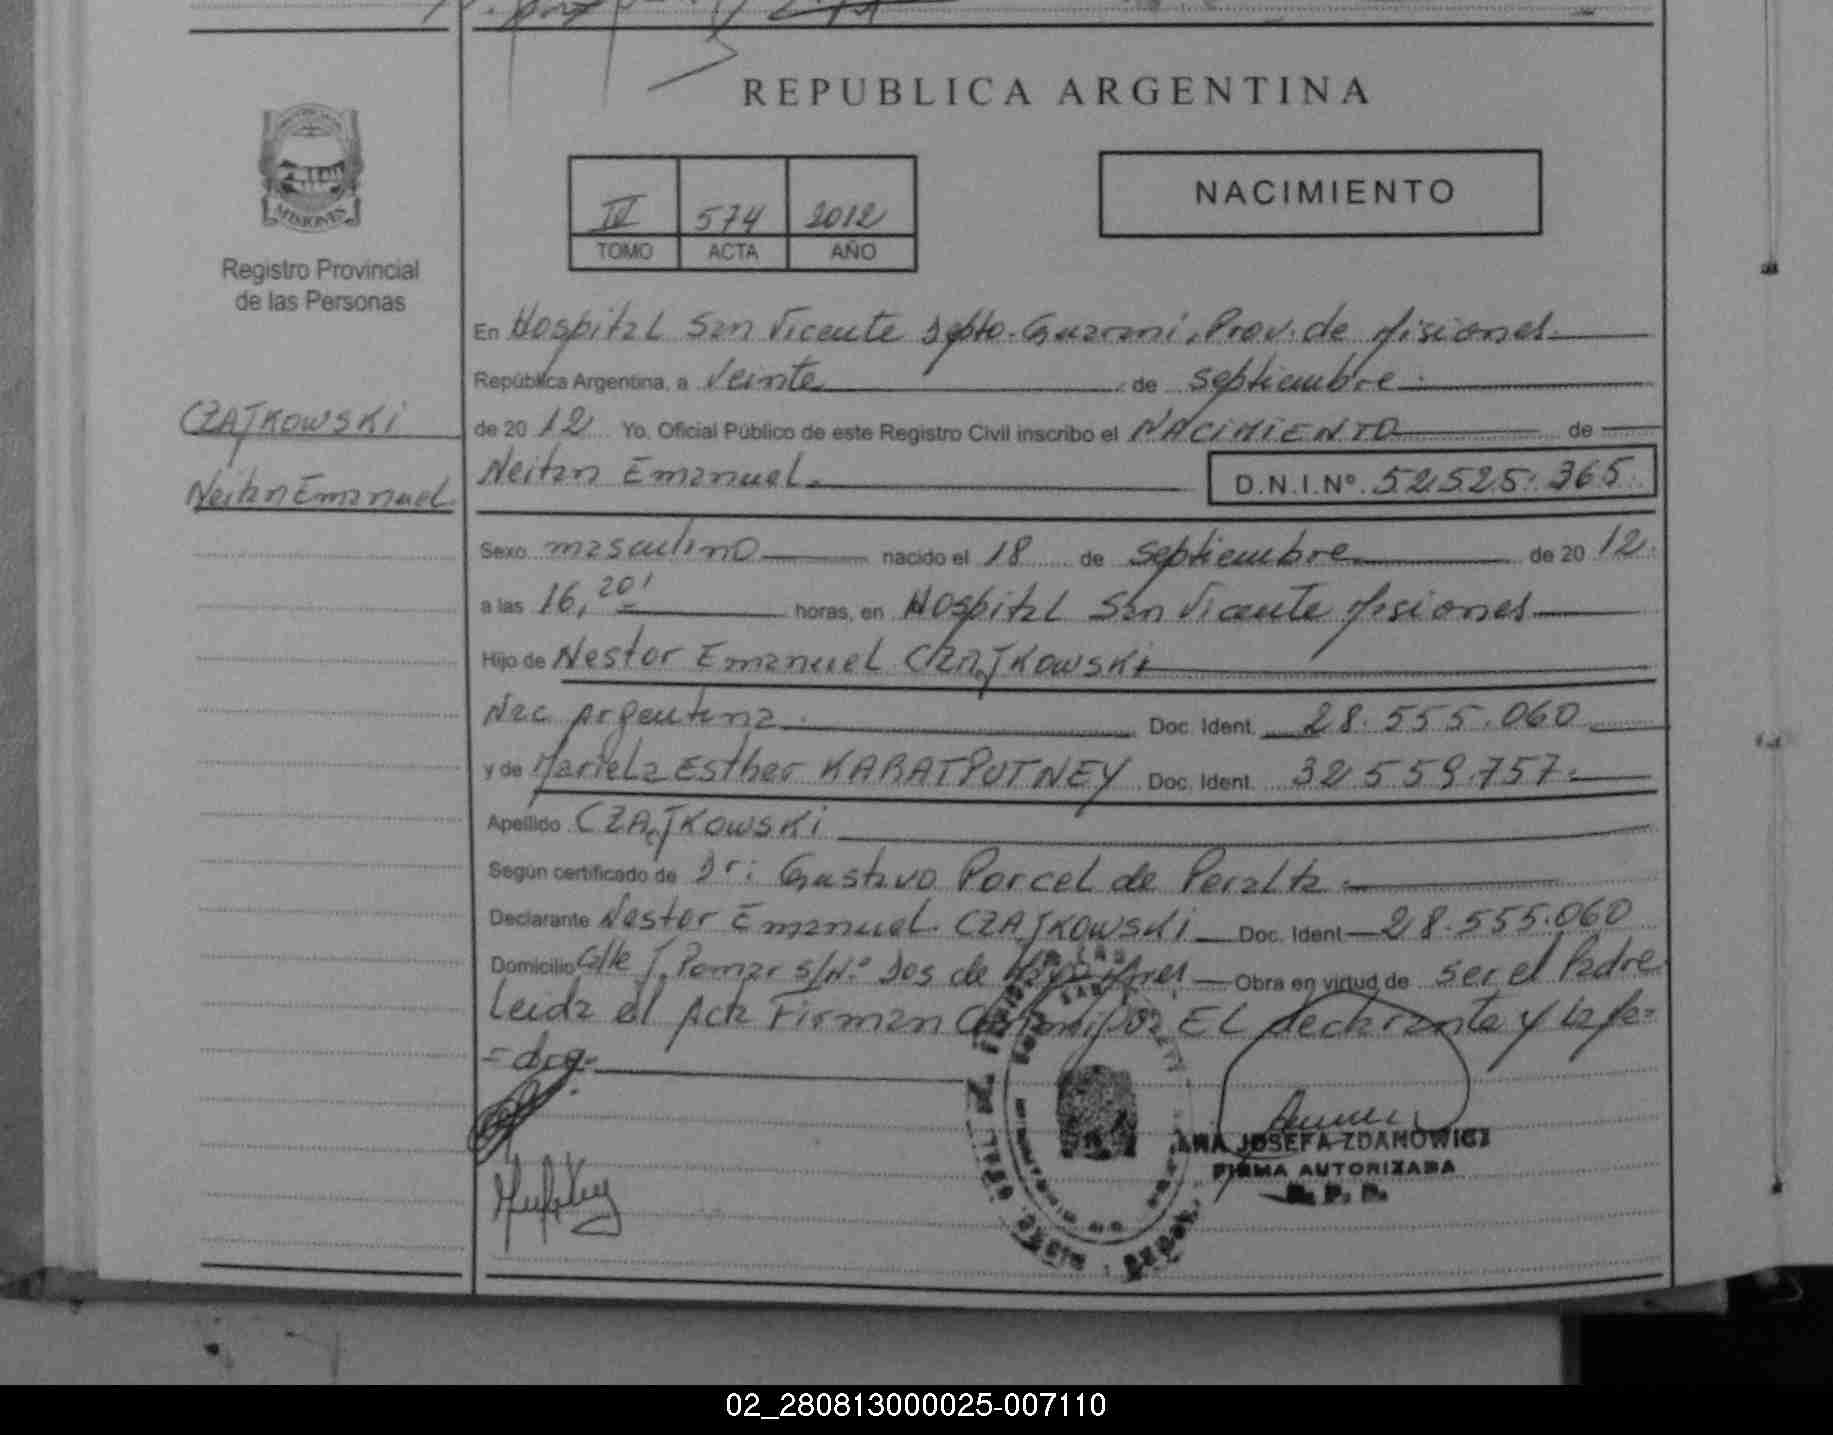 REPUBLICA ARGENTINA
MISIONES
Registro Provincial
de las Personas
IV 574 2012
TOMO ACTA AÑO
NACIMIENTO
CZAJKOWSKI
Neitan Emanuel
En Hospital San Vicente Dpto. Guarani, Prov. de Misiones
República Argentina, a Veinte de septiembre
de 2012 Yo, Oficial Público de este Registro Civil inscribo el NACIMIENTO de
Neitan Emanuel. D.N.I.Nº 52.525.365.
Sexo masculino nacido el 18 de septiembre de 2012
a las 16,20' horas, en Hospital San Vicente Misiones
Hijo de Nestor Emanuel CZAJKOWSKI
Nac Argentina. Doc. Ident. 28.555.060
y de Mariela Esther KARATPUTNEY Doc. Ident. 32.559.757.
Apellido CZAJKOWSKI
Según certificado de Dr: Gustavo Porcel de Peralta.
Declarante Nestor Emanuel CZAJKOWSKI Doc. Ident 28.555.060
Domicilio Calle J. Pomar S/Nº Dos de Obra en virtud de ser el Padre
Leida el Acta Firman EL declarante y la
ANA JOSEFA ZDANOWICZ
FIRMA AUTORIZADA
R. P. P.
02_280813000025-007110